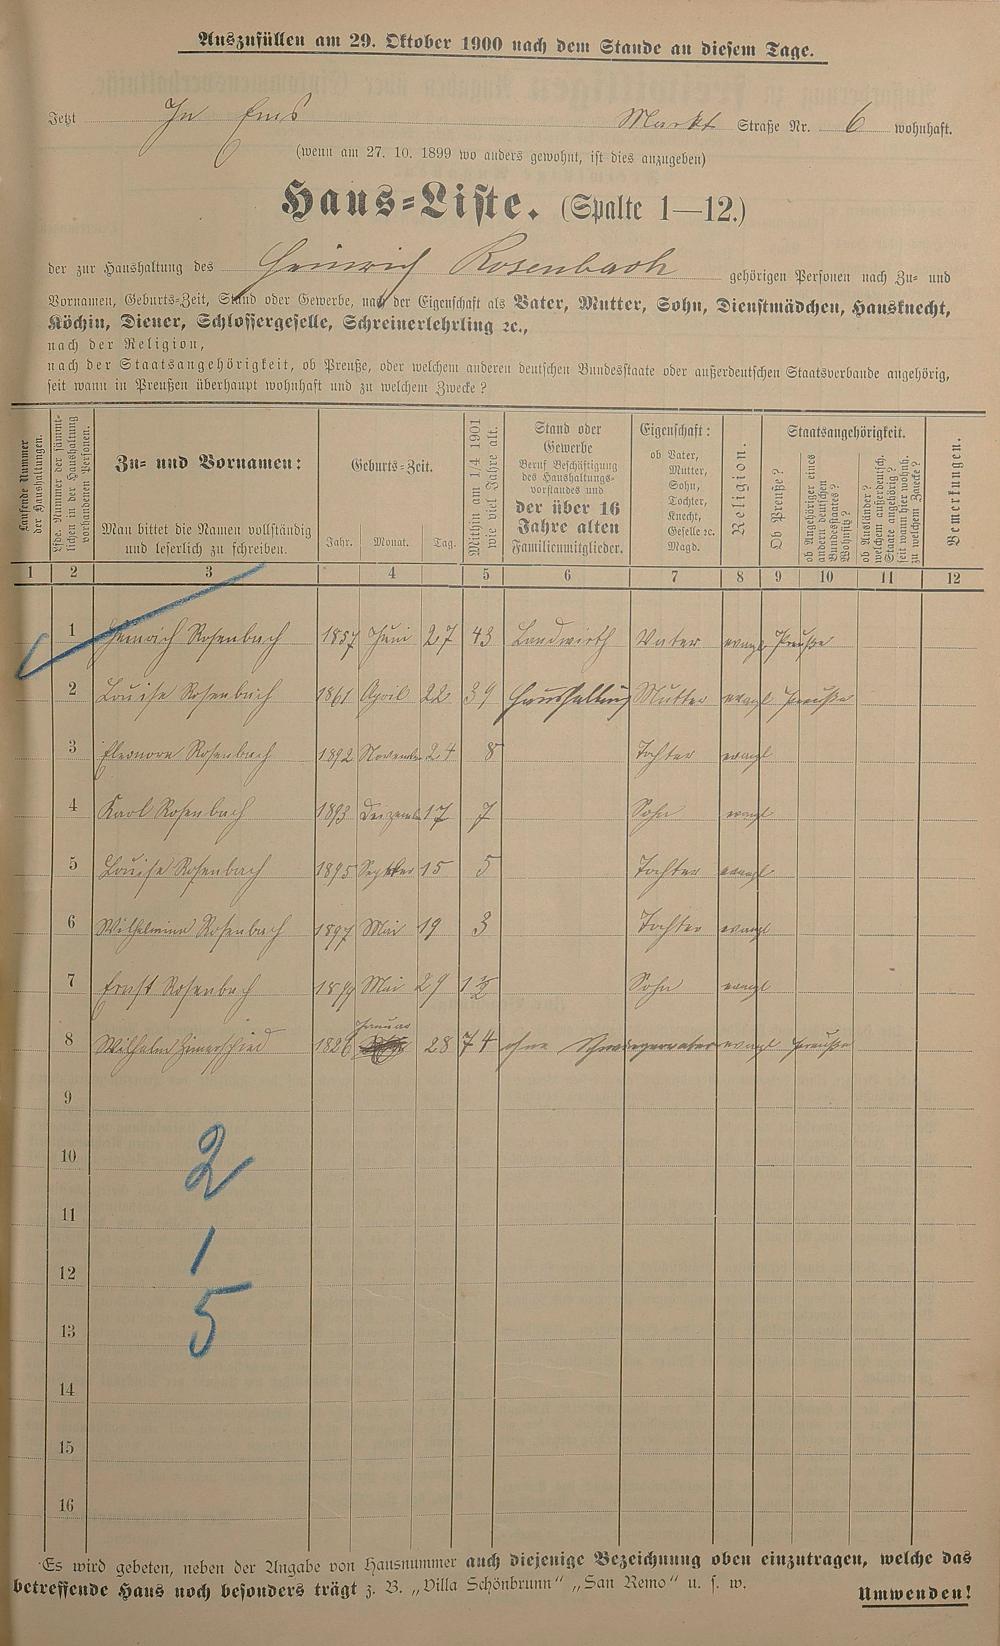 Auszufüllen am 29. Oktober 1900 nach dem Stande an diesem Tage.
Jetzt In Ems Markt Straße Nr. 6 wohnhaft.
(wenn am 27. 10. 1899 wo anders gewohnt, ist dies anzugeben)
Haus-Liste. (Spalte 1—12.)
der zur Haushaltung des Heinrich Rosenbach gehörigen Personen nach Zu- und
Vornamen, Geburts-Zeit, Stand oder Gewerbe, nach der Eigenschaft als Vater, Mutter, Sohn, Dienstmädchen, Hausknecht,
Köchin, Diener, Schlossergeselle, Schreinerlehrling ꝛc.,
nach der Religion,
nach der Staatsangehörigkeit, ob Preuße, oder welchem anderen deutschen Bundesstaate oder außerdeutschen Staatsverbande angehörig,
seit wann in Preußen überhaupt wohnhaft und zu welchem Zwecke?
Laufende Nummer
der Haushaltungen.
Lfde. Nummer der sämmt-
lichen in der Haushaltung
vorhandenen Personen.
Zu- und Vornamen:
Man bittet die Namen vollständig
und leserlich zu schreiben.
Geburts-Zeit.
Jahr. Monat. Tag.
Mithin am 1/4 1901
wie viel Jahre alt.
Stand oder
Gewerbe
Beruf Beschäftigung
des Haushaltungs-
vorstandes und
der über 16
Jahre alten
Familienmitglieder.
Eigenschaft:
ob Vater,
Mutter,
Sohn,
Tochter,
Knecht,
Geselle ꝛc.
Magd.
Religion.
Staatsangehörigkeit.
Ob Preuße?
ob Angehöriger eines
andern deutschen
Bundesstaates?
Wohnsitz?
ob Ausländer?
welchem außerdeutsch.
Staate angehörig?
seit wann hier wohnh.
zu welchem Zwecke?
Bemerkungen.
1 2 3 4 5 6 7 8 9 10 11 12
1 Heinrich Rosenbach 1857 Juni 27 43 Landwirth Vater evangl Preuße
2 Louise Rosenbach 1861 April 22 39 Haushaltung Mutter evangl Preuße
3 Eleonore Rosenbach 1892 November 24 8 Tochter evangl
4 Karl Rosenbach 1893 Dezember 17 7 Sohn evangl
5 Louise Rosenbach 1895 Septber 15 5 Tochter evangl
6 Wilhelmine Rosenbach 1897 Mai 19 3 Tochter evangl
7 Ernst Rosenbach 1899 Mai 29 1 ½ Sohn evangl
8 Wilhelm 1826 Januar 28 74 ohne Schwiegervater evangl Preuße
9
10
11
12
13
14
15
16
2
1
5
Es wird gebeten, neben der Angabe von Hausnummer auch diejenige Bezeichnung oben einzutragen, welche das
betreffende Haus noch besonders trägt z. B. „Villa Schönbrunn" „San Remo" u. s. w.
Umwenden!